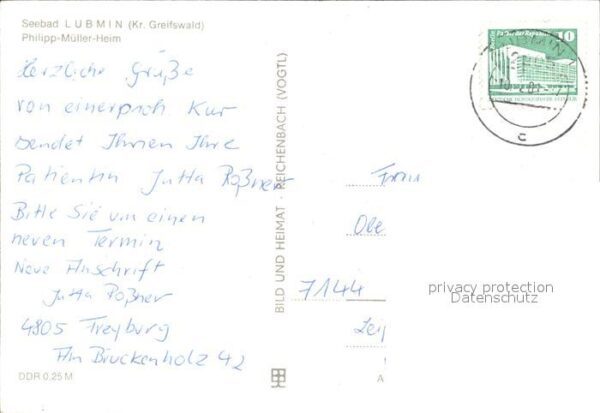 Seebad LUBMIN (Kr. Greifswald)
Philipp-Müller-Heim
Herzliche Grüße
von einer proph. Kur
sendet Ihnen Ihre
Patientin Jutta Roßner
Bitte Sie um einen
neuen Termin
Neue Anschrift
Jutta Roßner
4805 Freyburg
Am Bruckenholz 42
DDR 0,25 M
BILD UND HEIMAT · REICHENBACH (VOGTL)
10
Palast der Republik
Frau
Obe
7144
Leip
A
privacy protection
Datenschutz